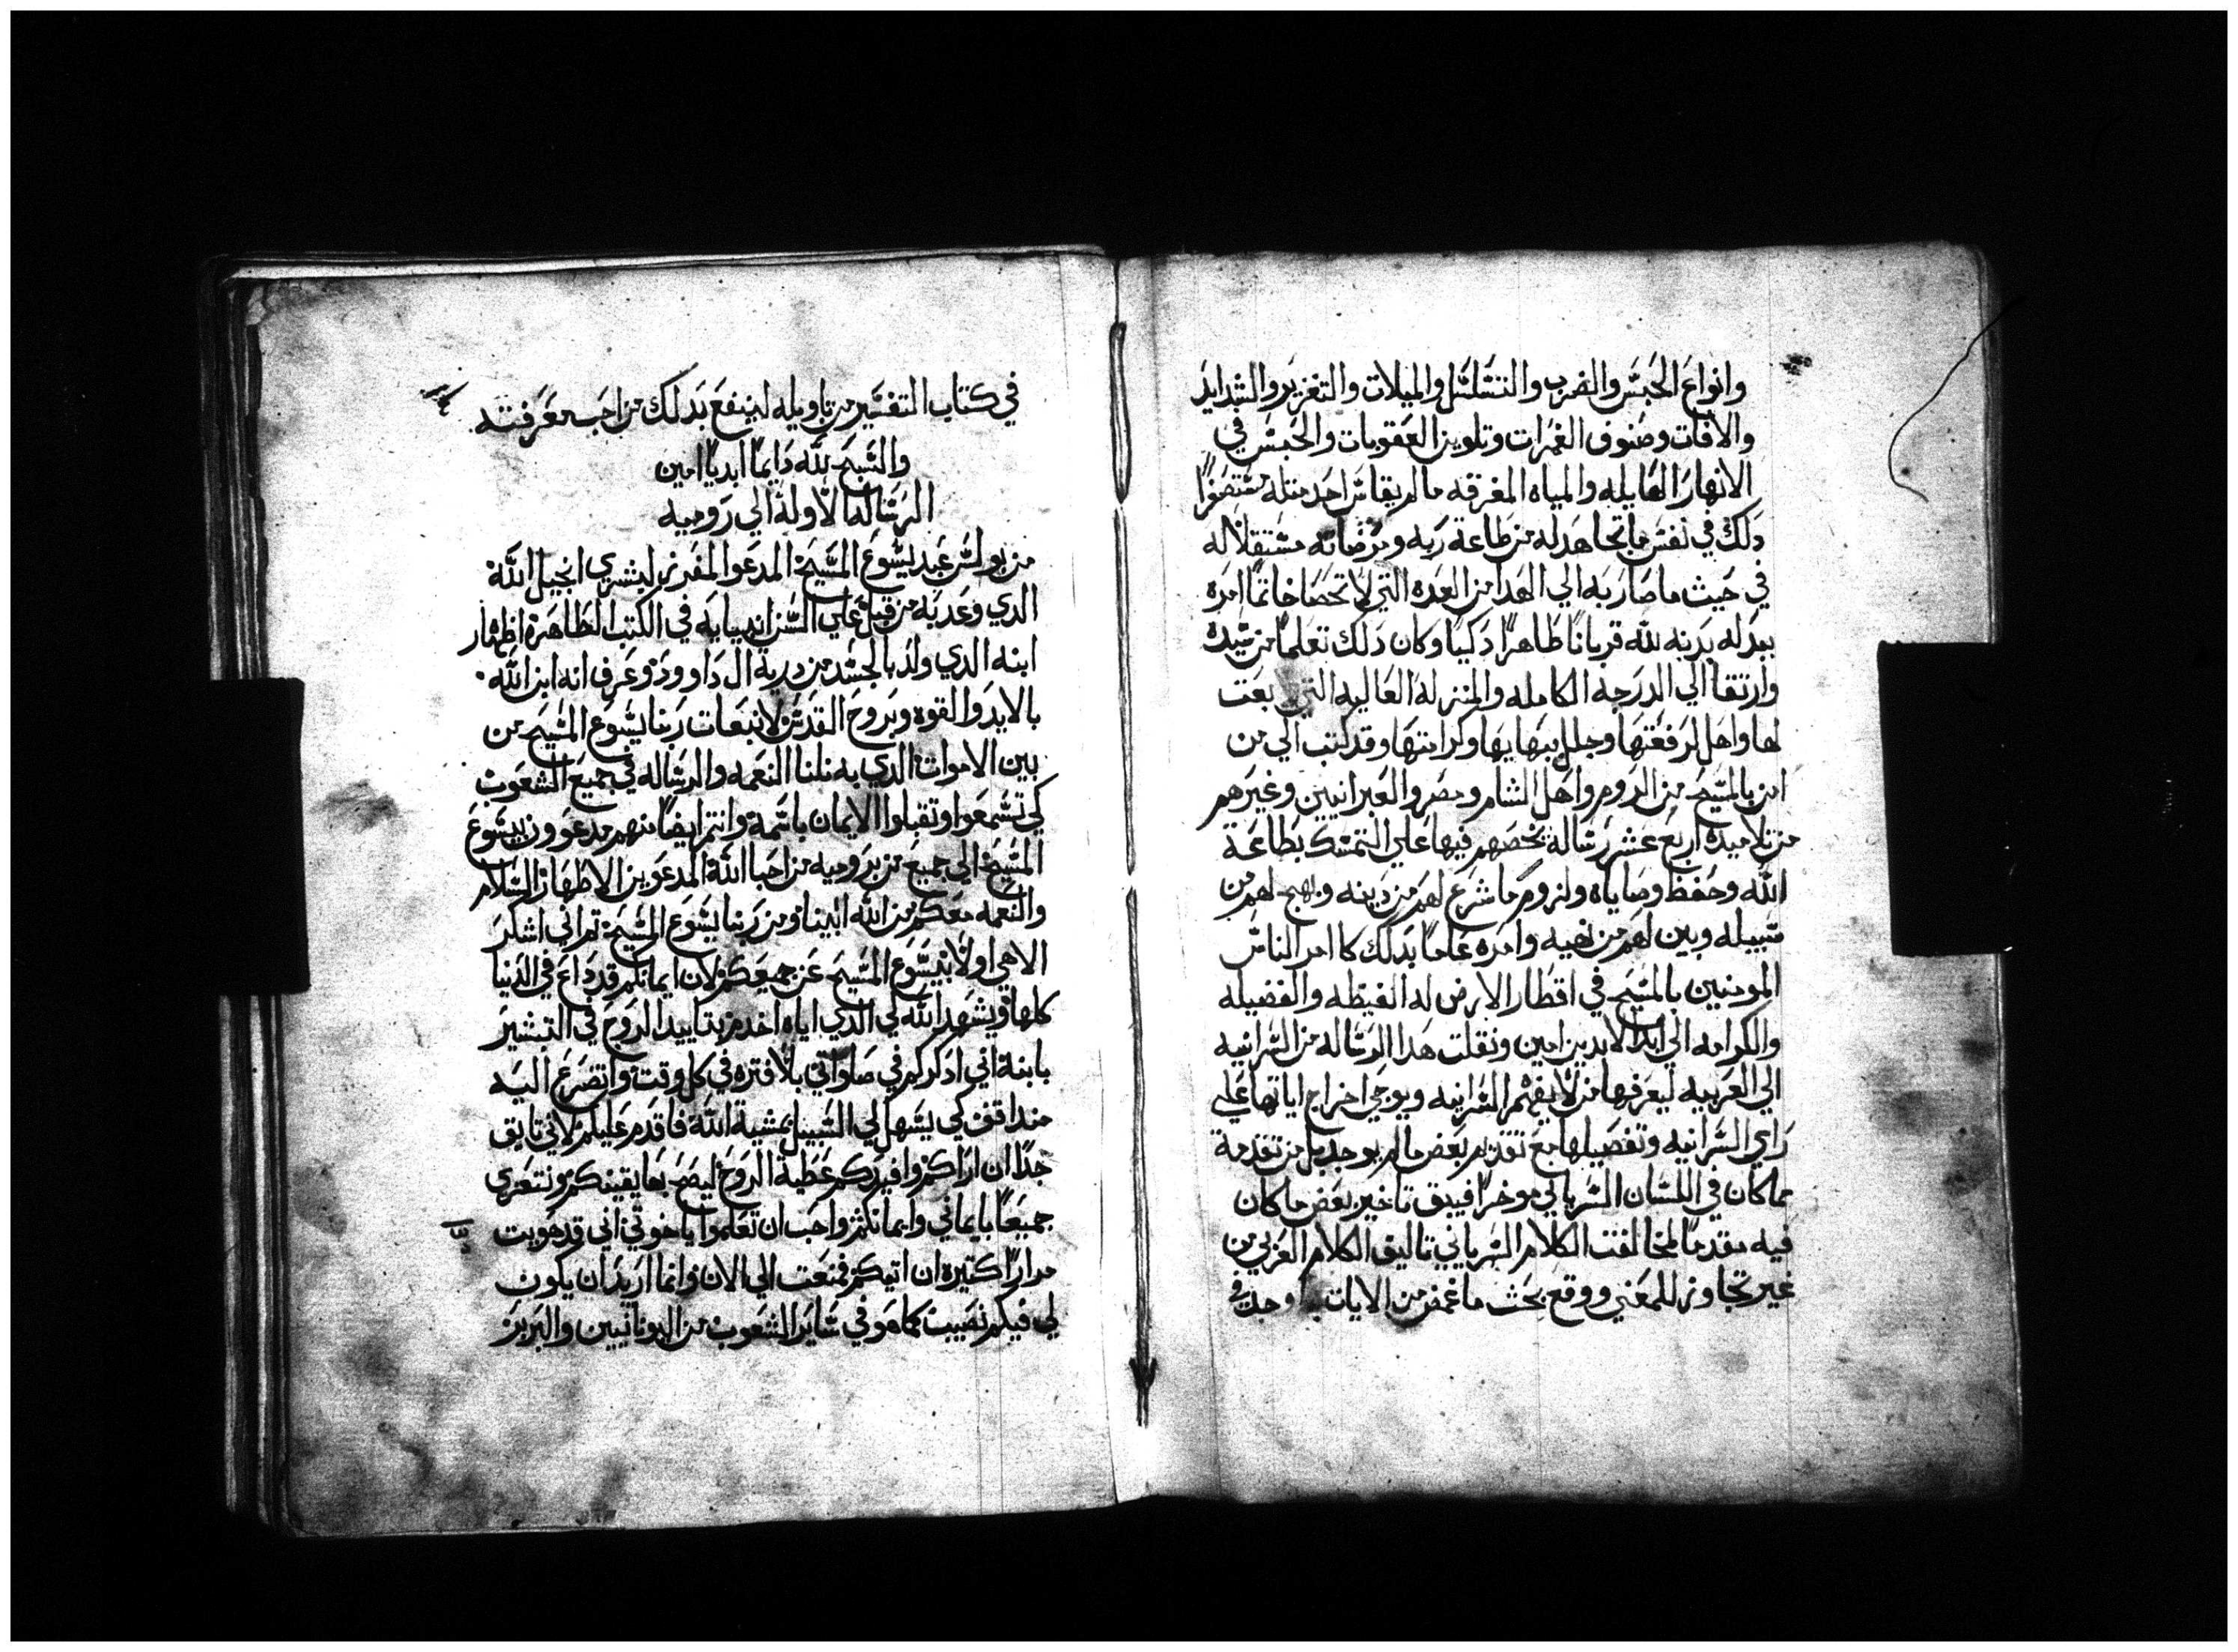 وانواع الحبس والضرب والتسلسل والميلات والتغرير والشدايد
والافات وصنوف الغمرات وتلوين العقوبات والحبس في
الانهار الهايله والمياه المغرقه ما لم يقاس احد مثله مستصغرا
دلك في نفس ما تجاهد له من طاعة ربه ومرضاته مستقلا له
في حيث ما صار به الي الهدا من العده التي لا تحصا خاتما امره
ببدله بدنه لله قربانا طاهرا دكيا وكان دلك تعلما من سيده
وارتقا الي الدرجة الكامله والمنزلة العاليه التي بعت
لها واهل لرفعتها وجلل ببهايها وكرامتها وقد كتب الي من
امن بالمسيح من الروم واهل الشام ومصر والعبرانيين وغيرهم
من تلاميده اربع عشر رسالة يحضهم فيها علي التمسك بطاعة
الله وحفظ وصاياه ولزوم ما شرع لهم من دينه ونهج لهم من
سبيله وبين لهم من نهيه وامره عاما بدلك كا امر الناس
المومنين بالمسيح في اقطار الارض له الغبطه والفضيله
والكرامه الي ابد الابدين امين ونقلت هدا الرساله من السرانيه
الي العربيه ليعرفها من لا يفهم السرانيه ويوحي اخراج اياتها علي
راي السرانيه وتفصيلها مع تقديم بعض ما لم يوجد بل من تقدمة
مما كان في اللسان السرياني موخرا فيبق تاخير بعض ما كان
فيه مقدما لمخالفت الكلام السرياني تاليق الكلام العربي من
غير تجاوز للمعني ووقع بحث ما غمض من الايات وجد في
في كتاب التفسير من تاويله لينتفع بدلك من احب معرفته
والسبح لله دايما ابديا امين
الرساله الاوله الي روميه
من بولس عبد يسوع المسيح المدعوا المفرز لبشري انجيل الله
الدي وعد به من قبل علي السن انبيايه في الكتب الطاهرة اظهار
ابنه الدي ولد بالجسد من درية ال داوود وعرف انه ابن الله
بالايد والقوه وبروح القدس لانبعات ربنا يسوع المسيح من
بين الاموات الدي به نلنا النعمه والرساله في جميع الشعوب
كي تسمعوا وتقبلوا الايمان باسمه وانتم ايضا منهم مدعوون بيسوع
المسيح الي جميع من بروميه من احبا الله المدعوين الاطهار السلام
والنعمه معكم من الله ابينا ومن ربنا يسوع المسيح تم اني اشكر
الاهي اولا بيسوع المسيح عن جميعكم لان ايمانكم قد داع في الدنيا
كلها ويشهد الله لي الدي اياه اخدم بتاييد الروح في التبشير
بابنه اني ادكركم في صلواتي بلا فتره في كل وقت واتضرع اليه
مند اقف كي يسهل لي السبيل بمشية الله فاقدم عليكم لاني تايق
جدا ان اراكم وافيدكم عطية الروح ليصح بها يقينكم ونتعزي
جميعا بايماني وايمانكم واحب ان تعلموا يا خوتي اني قد هويت
مرارا كتيره ان اتيكم فمنعت الي الان وانما اريد ان يكون
لي فيكم نصيب كما هو في ساير الشعوب من اليونانيين والبربر